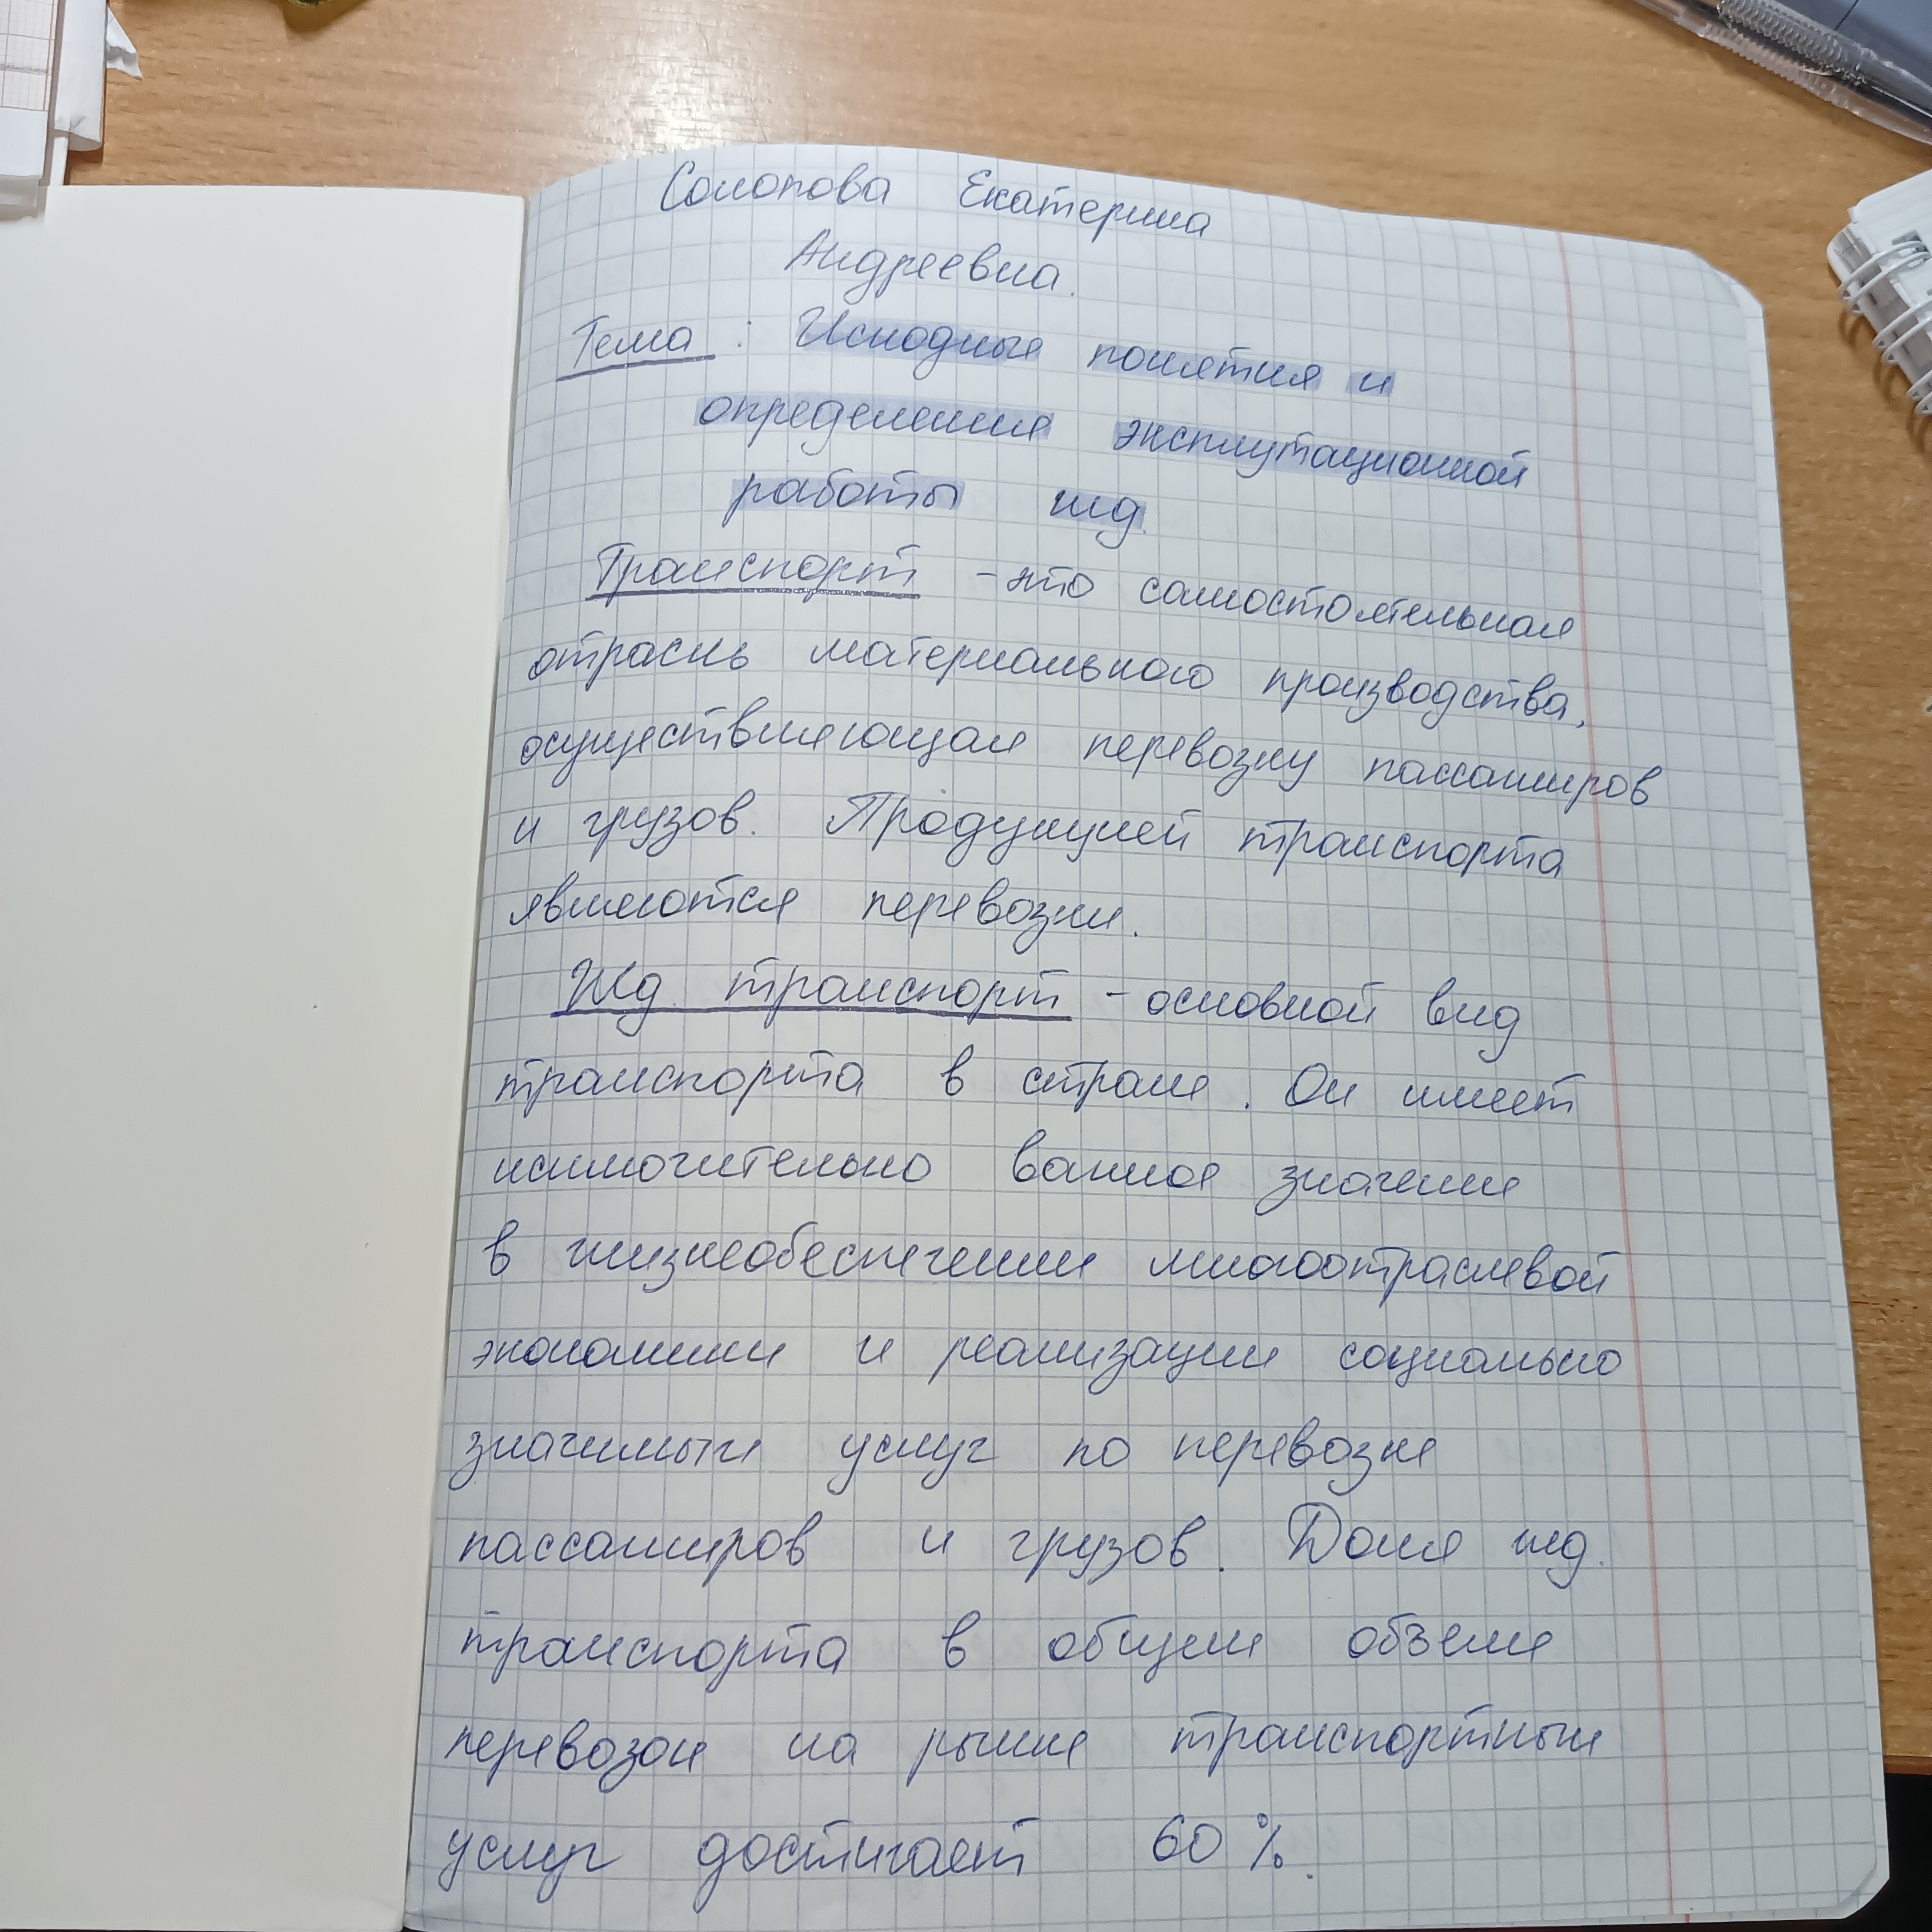 Солопова Екатерина
Андреевна.
Тема: Исходные понятия и
определения эксплутационной
работы жд.
Транспорт - это самостоятельная
отрасль материального производства,
осуществляющая перевозку пассажиров
и грузов. Продукцией транспорта
являются перевозки.
Жд транспорт - основной вид
транспорта в стране. Он имеет
исключительно важное значение
в жизнеобеспечении многоотраслевой
экономики и реализации социально
значимых услуг по перевозке
пассажиров и грузов. Доля жд.
транспорта в общем объеме
перевозок на рынке транспортных
услуг достигает 60 %.